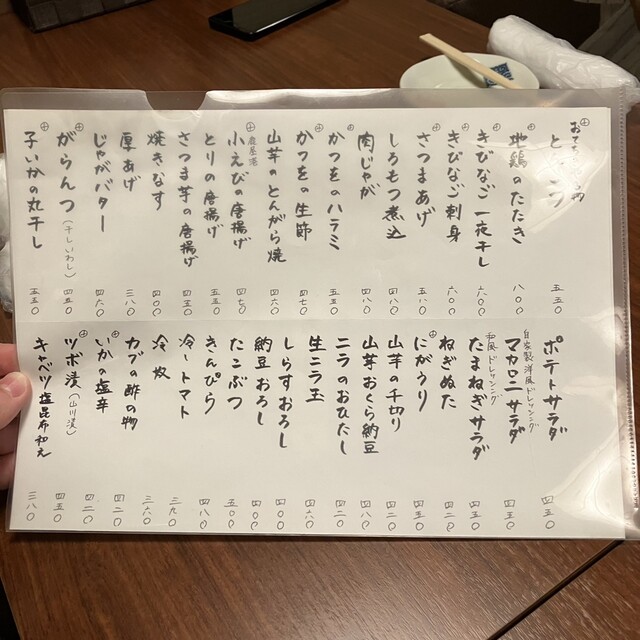 五五〇
㊉地鶏のたたき
八〇〇
㊉きびなご一夜干し
六〇〇
㊉きびなご刺身
六〇〇
㊉さつまあげ
五八〇
しろもつ煮込
四八〇
肉じゃが
四八〇
㊉かつをのハラミ
五五〇
㊉かつをの生節
四七〇
山芋のとんがら焼
四六〇
㊉鹿児島産
小えびの唐揚げ
四七〇
とりの唐揚げ
五五〇
さつま芋の唐揚げ
四五〇
焼きなす
四〇〇
厚あげ
三八〇
じゃがバター
四六〇
㊉がらんつ(干しいわし)
四五〇
㊉子いかの丸干し
五五〇
ポテトサラダ
四五〇
マカロニサラダ
自家製洋風ドレッシング
四五〇
たまねぎサラダ
和風ドレッシング
四五〇
ねぎぬた
四二〇
㊉にがうり
四五〇
山芋の千切り
四二〇
山芋おくら納豆
四八〇
ニラのおひたし
四二〇
生ニラ玉
四六〇
しらすおろし
四〇〇
納豆おろし
四〇〇
たこぶつ
五〇〇
きんぴら
四八〇
冷トマト
三九〇
冷奴
三六〇
カブの酢の物
四二〇
㊉いかの塩辛
四二〇
㊉ツボ漬(山川漬)
四五〇
キャベツ塩昆布和え
三八〇